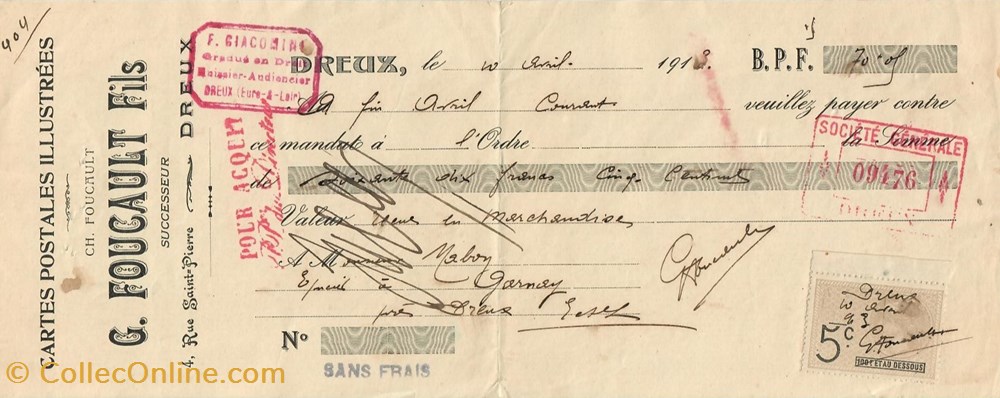 404
CARTES POSTALES ILLUSTRÉES
CH. FOUCAULT
G. FOUCAULT Fils
SUCCESSEUR
4, Rue Saint-Pierre DREUX
F. GIACOMINI
Gradué en Droit
Huissier-Audiencier
DREUX (Eure-&-Loir)
DREUX, le 10 Avril 1913 B.P.F. 70.05
A fin Avril Courant veuillez payer contre
ce mandat à l'Ordre la Somme
de Soixante dix francs Cinq Centimes
Valeur en Marchandises
A Monsieur Maboy
Epicier à Garnay
près Dreux
G Foucault
POUR ACQUIT
SOCIÉTÉ GÉNÉRALE
09476
DREUX
Nº
SANS FRAIS
Dreux
10
G Foucault
5 c.
100f ET AU DESSOUS
© CollecOnline.com